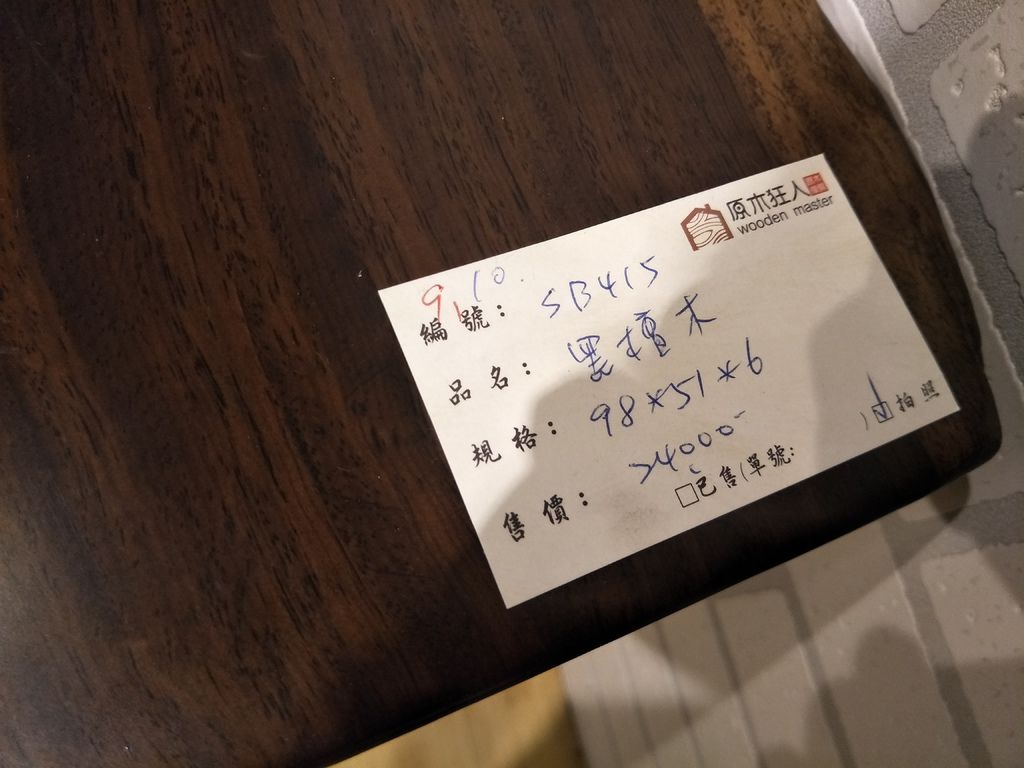 原木狂人
wooden master
9, 10.
編號： SB415
品名： 黑檀木
規格： 98*51*6
售價： 24000-
□已售(單號: )
拍照